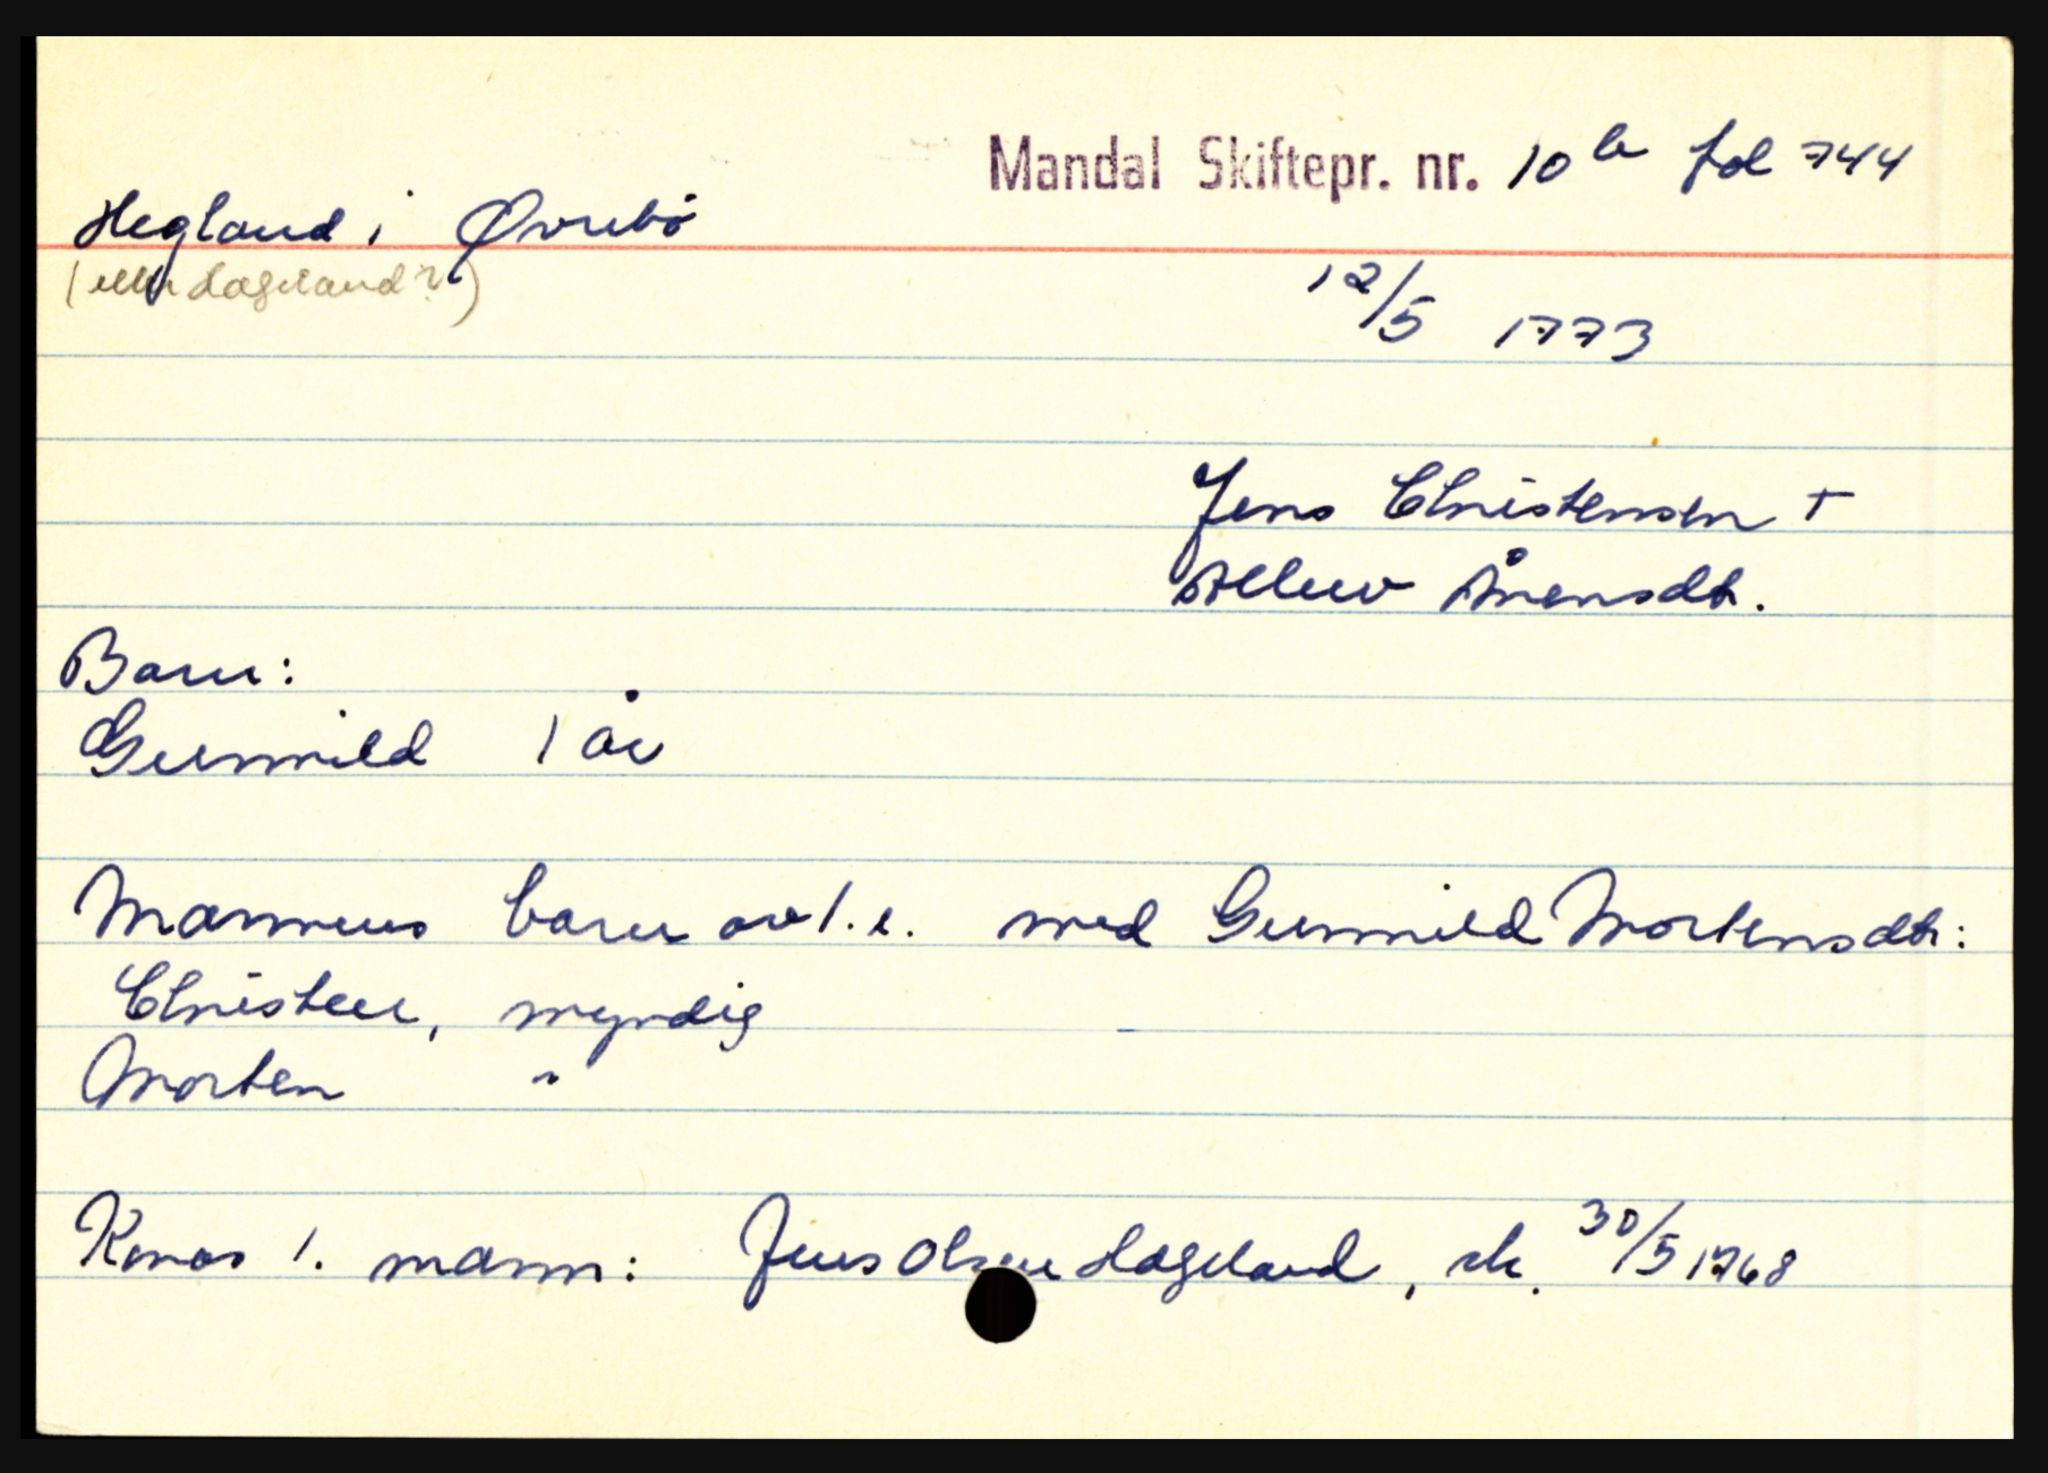 Mandal Skiftepr. nr. 10b fol 744
Hegland i Øvrebö
(eller Hageland?)
12/5 1773
Jens Christensen +
Ånensdtr.
Barn:
Gunnild 1 år
Mannens barn av 1. e. med Gunnild Mortensdtr:
Christen, myndig
Morten "
Konas 1. mann: Jens Olsen Hageland, sk. 30/5 1768